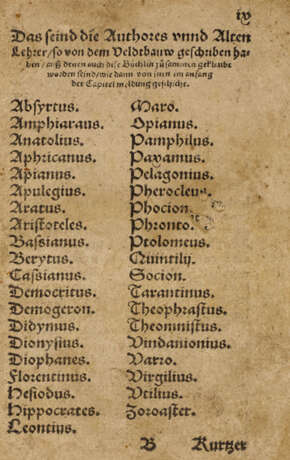 iv
Das seind die Authores vnnd Alten
Lehrer/ so von dem Veldtbauw geschriben ha-
ben/ auß denen auch dise Büchlin zůsammen geklaubt
worden seind/ wie dann von inen im anfang
der Capitel meldung geschicht.
Absyrtus.
Amphiaraus.
Anatolius.
Aphricanus.
Apianus.
Apulegius.
Aratus.
Aristoteles.
Bassianus.
Berytus.
Cassianus.
Democritus.
Demogeron.
Didymus.
Dionysius.
Diophanes.
Florentinus.
Hesiodus.
Hippocrates.
Leontius.
Maro.
Opianus.
Pamphilus.
Paxamus.
Pelagonius.
Pherocleus.
Phocion.
Phronto.
Ptolomeus.
Quintilij.
Socion.
Tarantinus.
Theophrastus.
Theomnistus.
Vindanionius.
Varro.
Virgilius.
Vtilius.
Zoroaster.
B Kurtzer